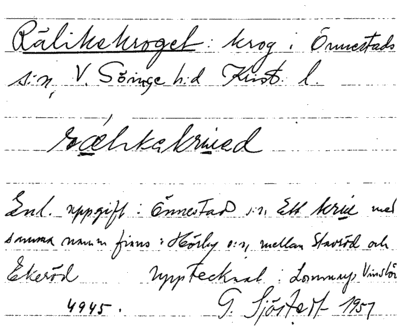 Rälikskroget: krog i Önnestads
sn, V. Göinge hd Krist. l.
rälikskrued
Enl. uppgift i Önnestad sn. Ett krue med
samma namn finns i Hörby sn, mellan Stavröd och
Ekeröd upptecknat i Lommarp Vinslöv
4945. G. Sjöstedt 1957